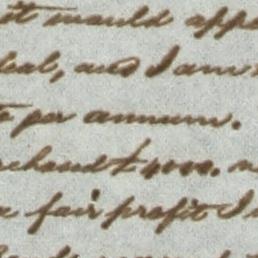 it would appe
deal, and I am
per annum.
rchand £4000.
a fair profit I